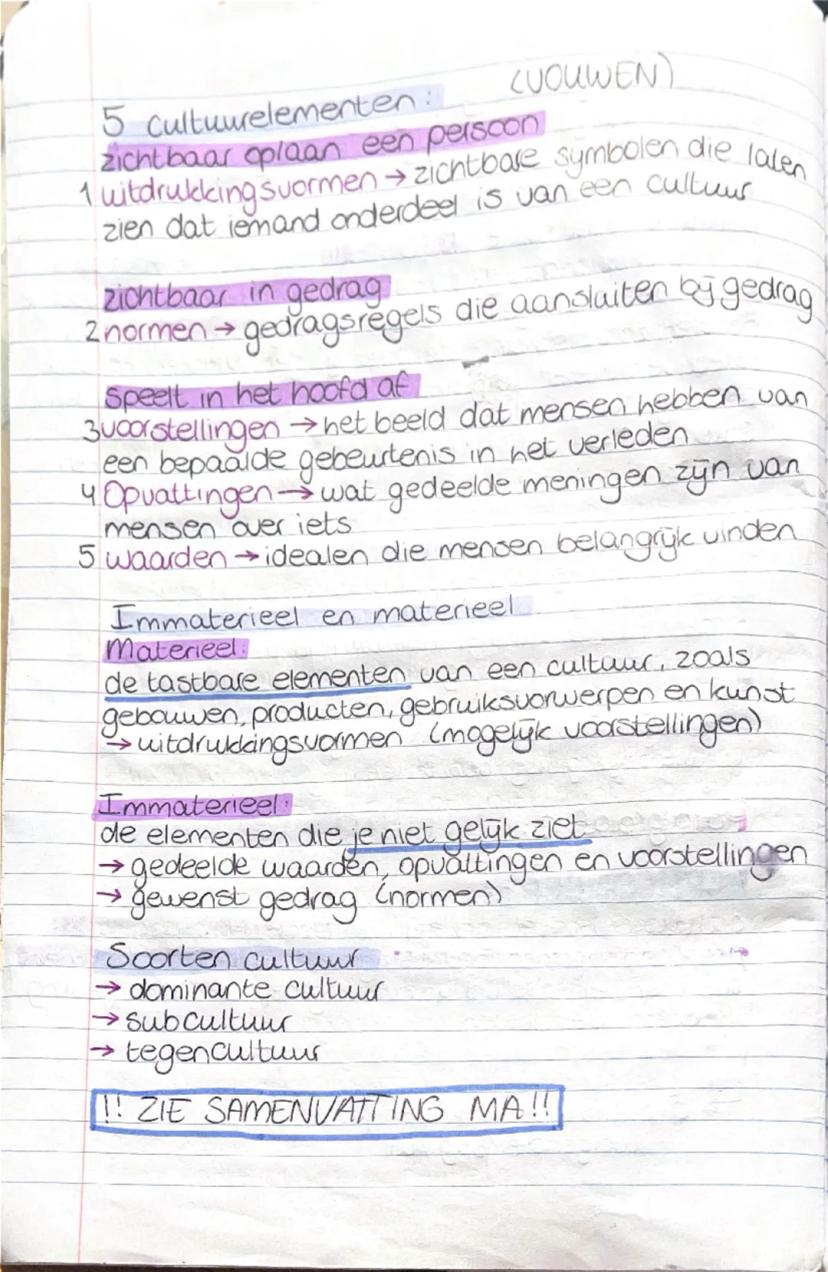 (VOUWEN)
5 cultuurelementen:
zichtbaar op/aan een persoon
1 uitdrukkingsvormen → zichtbare symbolen die laten
zien dat iemand onderdeel is van een cultuur
zichtbaar in gedrag
2 normen → gedragsregels die aansluiten bij gedrag
speelt in het hoofd af
3 voorstellingen → het beeld dat mensen hebben van
een bepaalde gebeurtenis in het verleden
4 Opvattingen → wat gedeelde meningen zijn van
mensen over iets
5 waarden → idealen die mensen belangrijk vinden
Immaterieel en materieel
Materieel:
de tastbare elementen van een cultuur, zoals
gebouwen, producten, gebruiksvorwerpen en kunst
→ uitdrukkingsvormen (mogelijk voorstellingen)
Immaterieel:
de elementen die je niet gelijk ziet
→ gedeelde waarden, opvattingen en voorstellingen
→ gewenst gedrag (normen)
Soorten cultuur
→ dominante cultuur
→ subcultuur
→ tegencultuur
!! ZIE SAMENVATTING MA!!